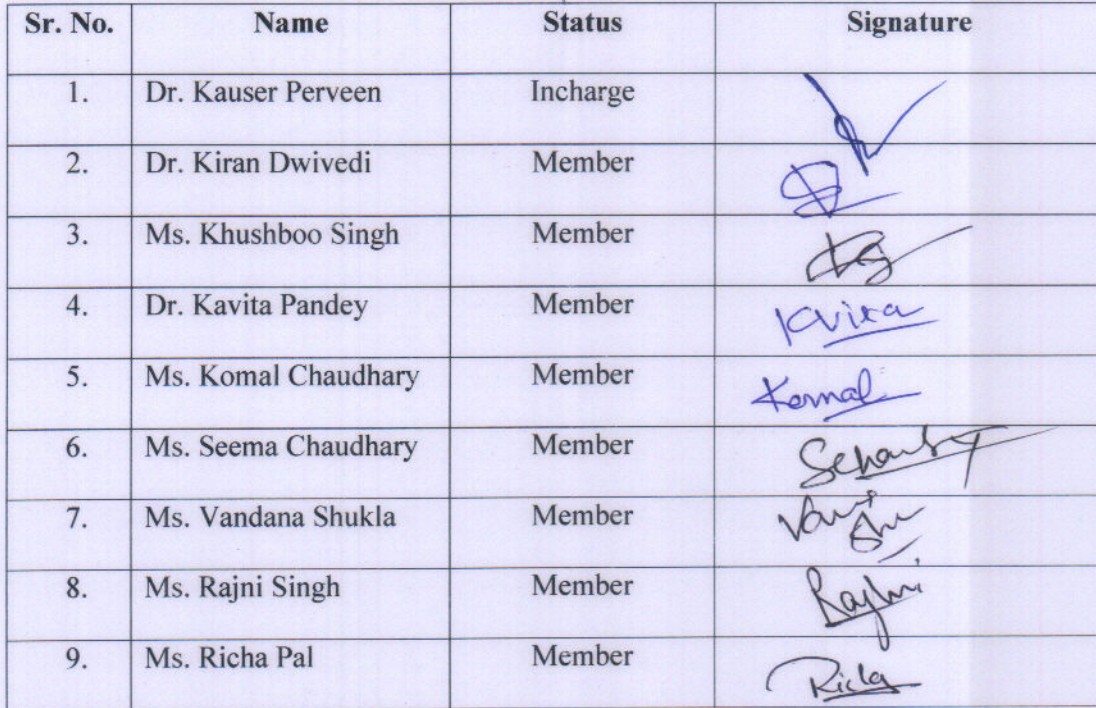 Sr. No. Name Status Signature
1. Dr. Kauser Perveen Incharge
2. Dr. Kiran Dwivedi Member
3. Ms. Khushboo Singh Member
4. Dr. Kavita Pandey Member Kvita
5. Ms. Komal Chaudhary Member Komal
6. Ms. Seema Chaudhary Member
7. Ms. Vandana Shukla Member
8. Ms. Rajni Singh Member Rajni
9. Ms. Richa Pal Member Richa